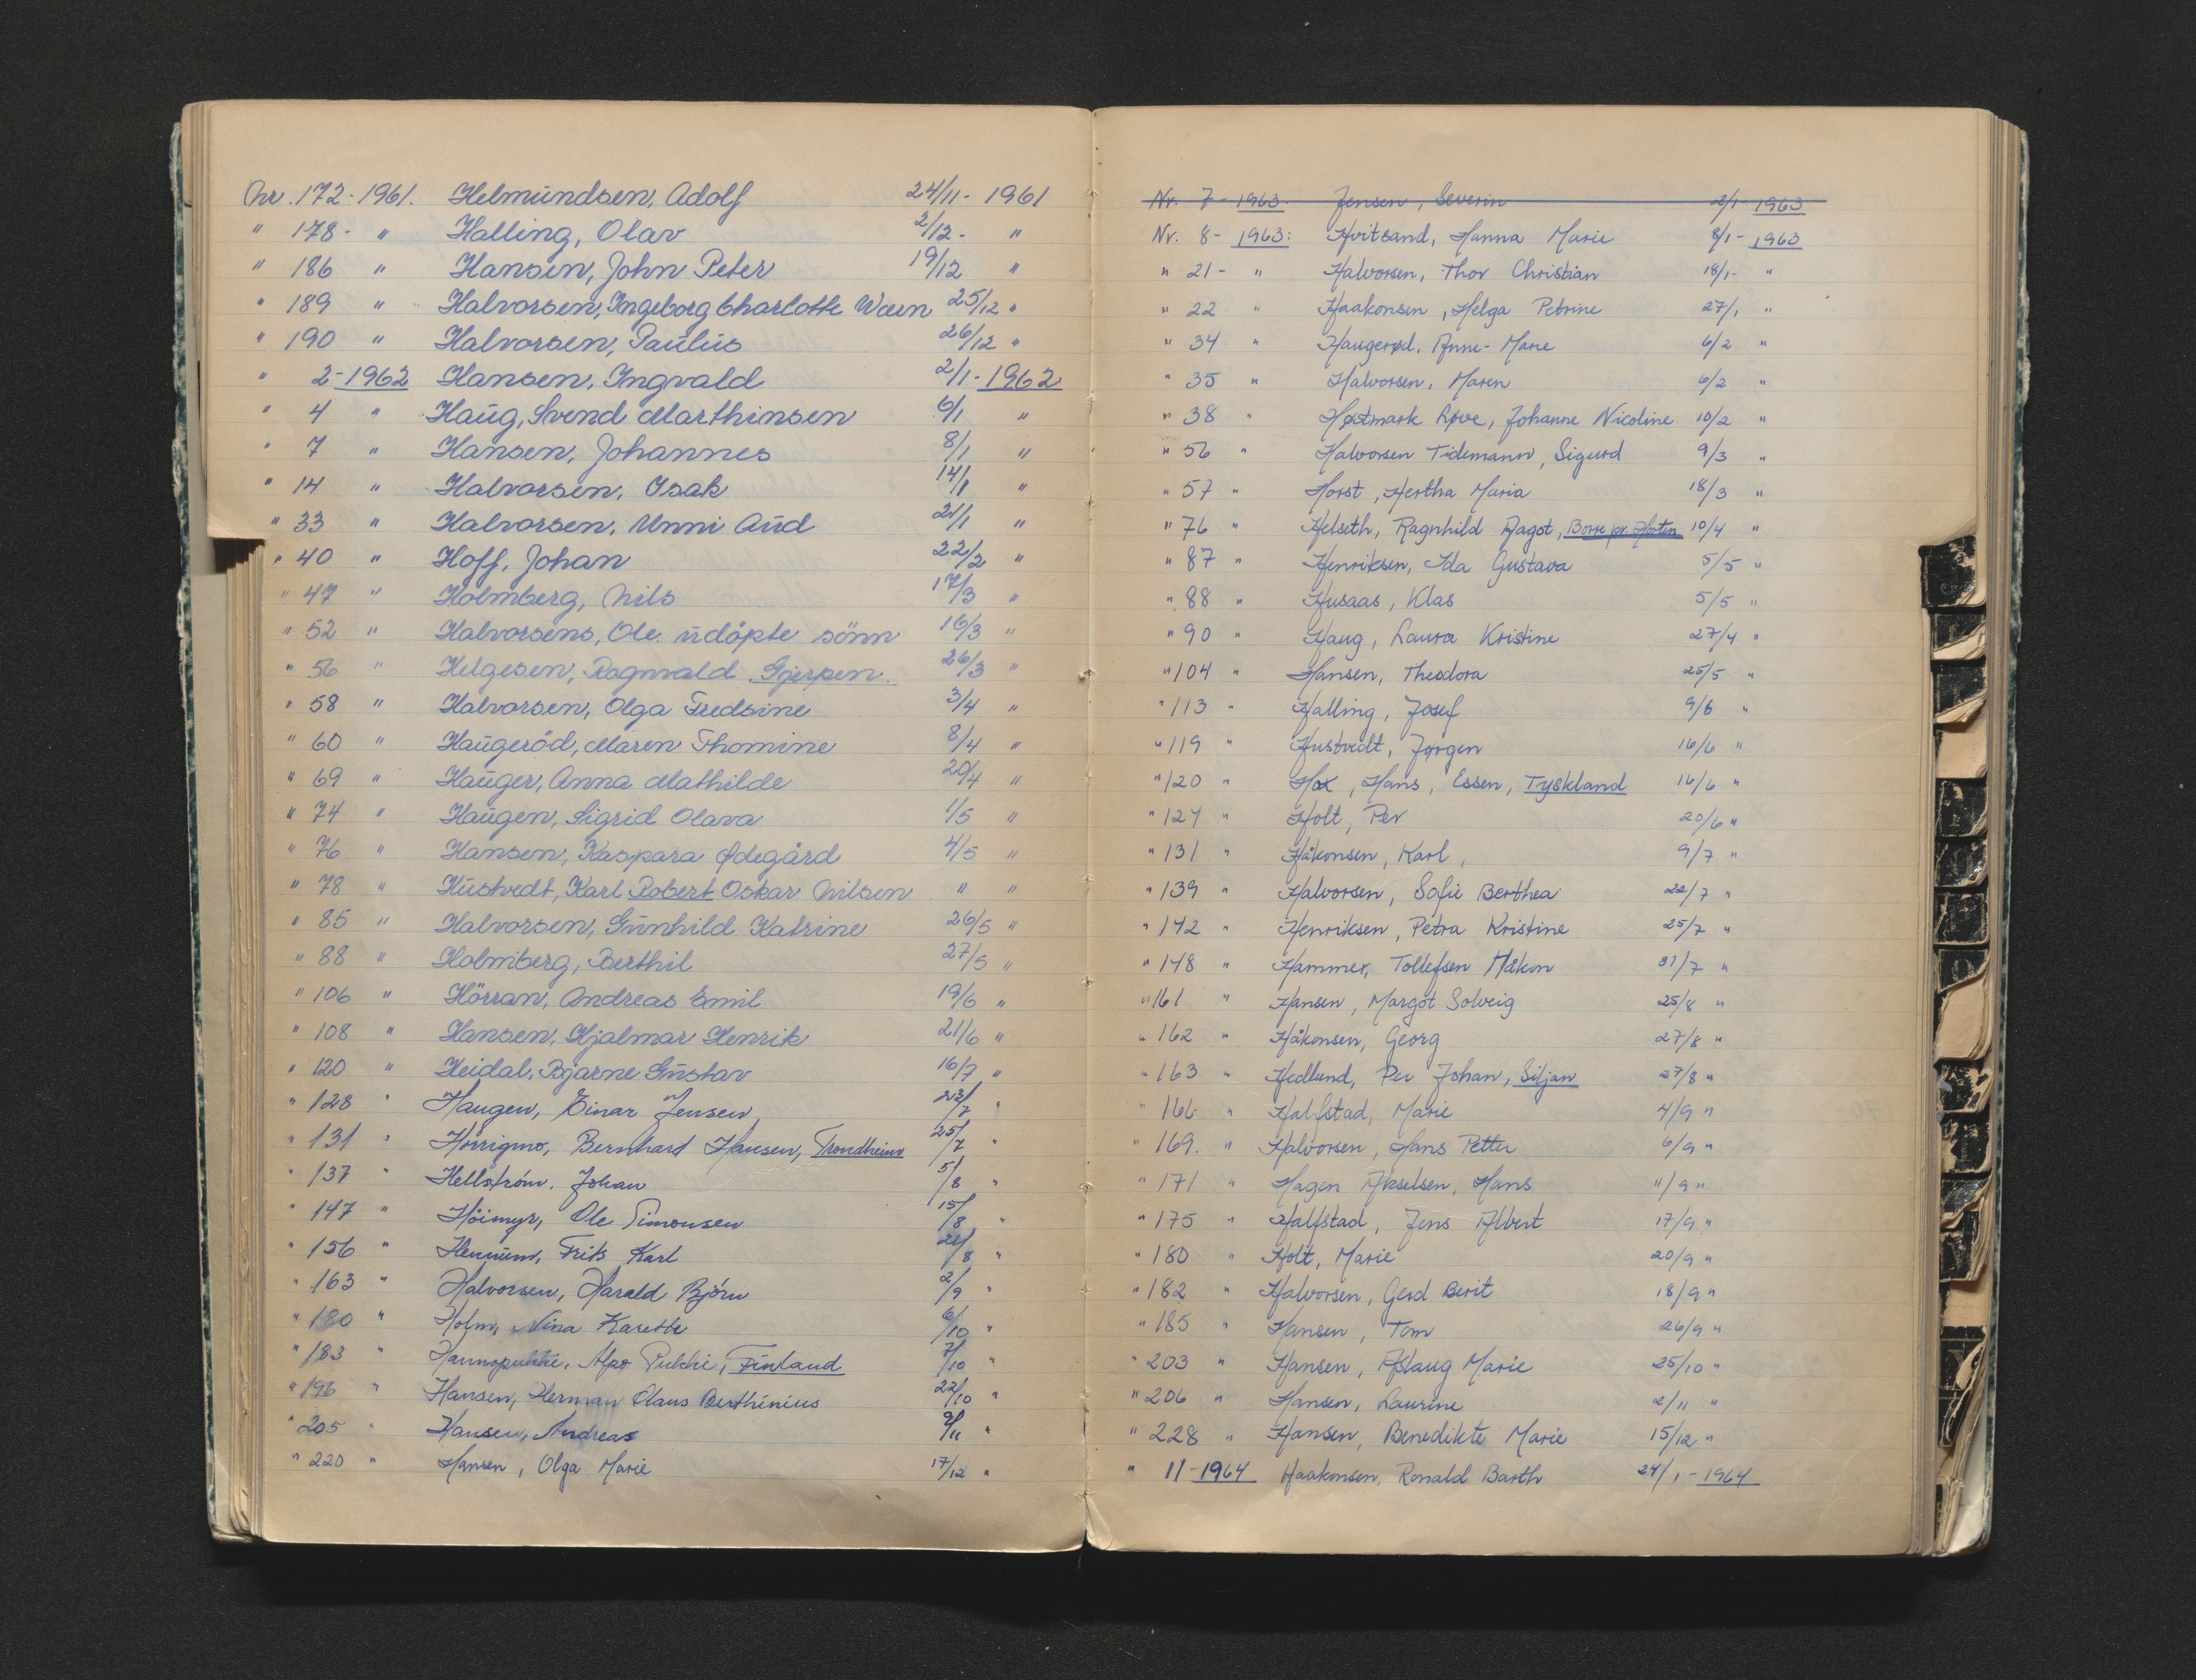 Nr. 172 - 1961. Helmundsen, Adolf 24/11 - 1961
" 178 - " Halling, Olav 2/12 - "
" 186 " Hansen, John Peter 19/12 "
" 189 " Halvorsen, Ingeborg Charlotte Wærn 25/12 "
" 190 " Halvorsen, Paulus 26/12 "
" 2 - 1962 Hansen, Ingvald 2/1 - 1962
" 4 " Haug, Svend Marthinsen 6/1 "
" 7 " Hansen, Johannes 8/1 "
" 14 " Halvorsen, Isak 14/1 "
" 33 " Halvorsen, Unni Aud "
" 40 " Hoff, Johan 22/2 "
" 47 " Holmberg, Nils 17/3 "
" 52 " Halvorsens, Ole udöpte sönn 16/3 "
" 56 " Helgesen, Ragnvald Gjerpen. 26/3 "
" 58 " Halvorsen, Olga Fredsine 3/4 "
" 60 " Haugeröd, Maren Thomine 8/4 "
" 69 " Hauger, Anna Mathilde 20/4 "
" 74 " Haugen, Sigrid Olava 1/5 "
" 76 " Hansen, Kaspara Ødegård 4/5 "
" 78 " Hustvedt, Karl Robert Oskar Nilsen " "
" 85 " Halvorsen, Gunhild Katrine 26/5 "
" 88 " Holmberg, Berthil 27/5 "
" 106 " Hörran, Andreas Emil 19/6 "
" 108 " Hansen, Hjalmar Henrik 21/6 "
" 120 " Heidal, Bjarne Gustav 16/7 "
" 128 " Haugen, Einar Jensen, 23/7 "
" 131 " Hörrigmo, Bernhard Hansen, Trondheim 25/7 "
" 137 " Hellström, Johan 5/8 "
" 147 " Höimyr, Ole Simonsen 15/8 "
" 156 " Hennum, Frits Karl 8 "
" 163 " Halvorsen, Harald Björn 2/9 "
" 180 " Holm, Nina Karette 6/10 "
" 183 " Alpo Pukki, Finland 7/10 "
" 196 " Hansen, Herman Olaus Berthinius 22/10 "
" 205 " Hansen, Andreas 9/11 "
" 220 " Hansen, Olga Marie 17/12 "
Nr. 7 - 1963. Jensen, Severin 2/1 - 1963
Nr. 8 - 1963: Hvitsand, Hanna Marie 8/1 - 1963
" 21 - " Halvorsen, Thor Christian 18/1 - "
" 22 " Haakonsen, Helga Petrine 27/1 "
" 34 " Haugerød, Anne-Marie 6/2 "
" 35 " Halvorsen, Maren 6/2 "
" 38 " Høstmark Løve, Johanne Nicoline 10/2 "
" 56 " Halvorsen Tidemann, Sigurd 9/3 "
" 57 " Horst, Hertha Maria 18/3 "
" 76 " Helseth, Ragnhild Dagot, Borre pr. Horten 10/4 "
" 87 " Henriksen, Ida Gustava 5/5 "
" 88 " Husaas, Klas 5/5 "
" 90 " Haug, Laura Kristine 27/4 "
" 104 " Hansen, Theodora 25/5 "
" 113 " Halling, Josef 9/6 "
" 119 " Hustvedt, Jørgen 16/6 "
" 120 " Hox, Hans, Essen, Tyskland 16/6 "
" 124 " Holt, Per 20/6 "
" 131 " Håkonsen, Karl, 9/7 "
" 139 " Halvorsen, Sofie Berthea 22/7 "
" 142 " Henriksen, Petra Kristine 25/7 "
" 148 " Hammer, Tollefsen Håkon 31/7 "
" 161 " Hansen, Margot Solveig 25/8 "
" 162 " Håkonsen, Georg 27/8 "
" 163 " Hedlund, Per Johan, Siljan 27/8 "
" 166 " Halfstad, Marie 4/9 "
" 169. " Halvorsen, Hans Petter 6/9 "
" 171 " Hagen Akselsen, Hans 11/9 "
" 175 " Halfstad, Jens Albert 17/9 "
" 180 " Holt, Marie 20/9 "
" 182 " Halvorsen, Gerd Berit 18/9 "
" 185 " Hansen, Tom 26/9 "
" 203 " Hansen, Aslaug Marie 25/10 "
" 206 " Hansen, Laurine 2/11 "
" 228 " Hansen, Benedikte Marie 15/12 "
" 11 - 1964 Haakonsen, Ronald Barth 24/1 - 1964